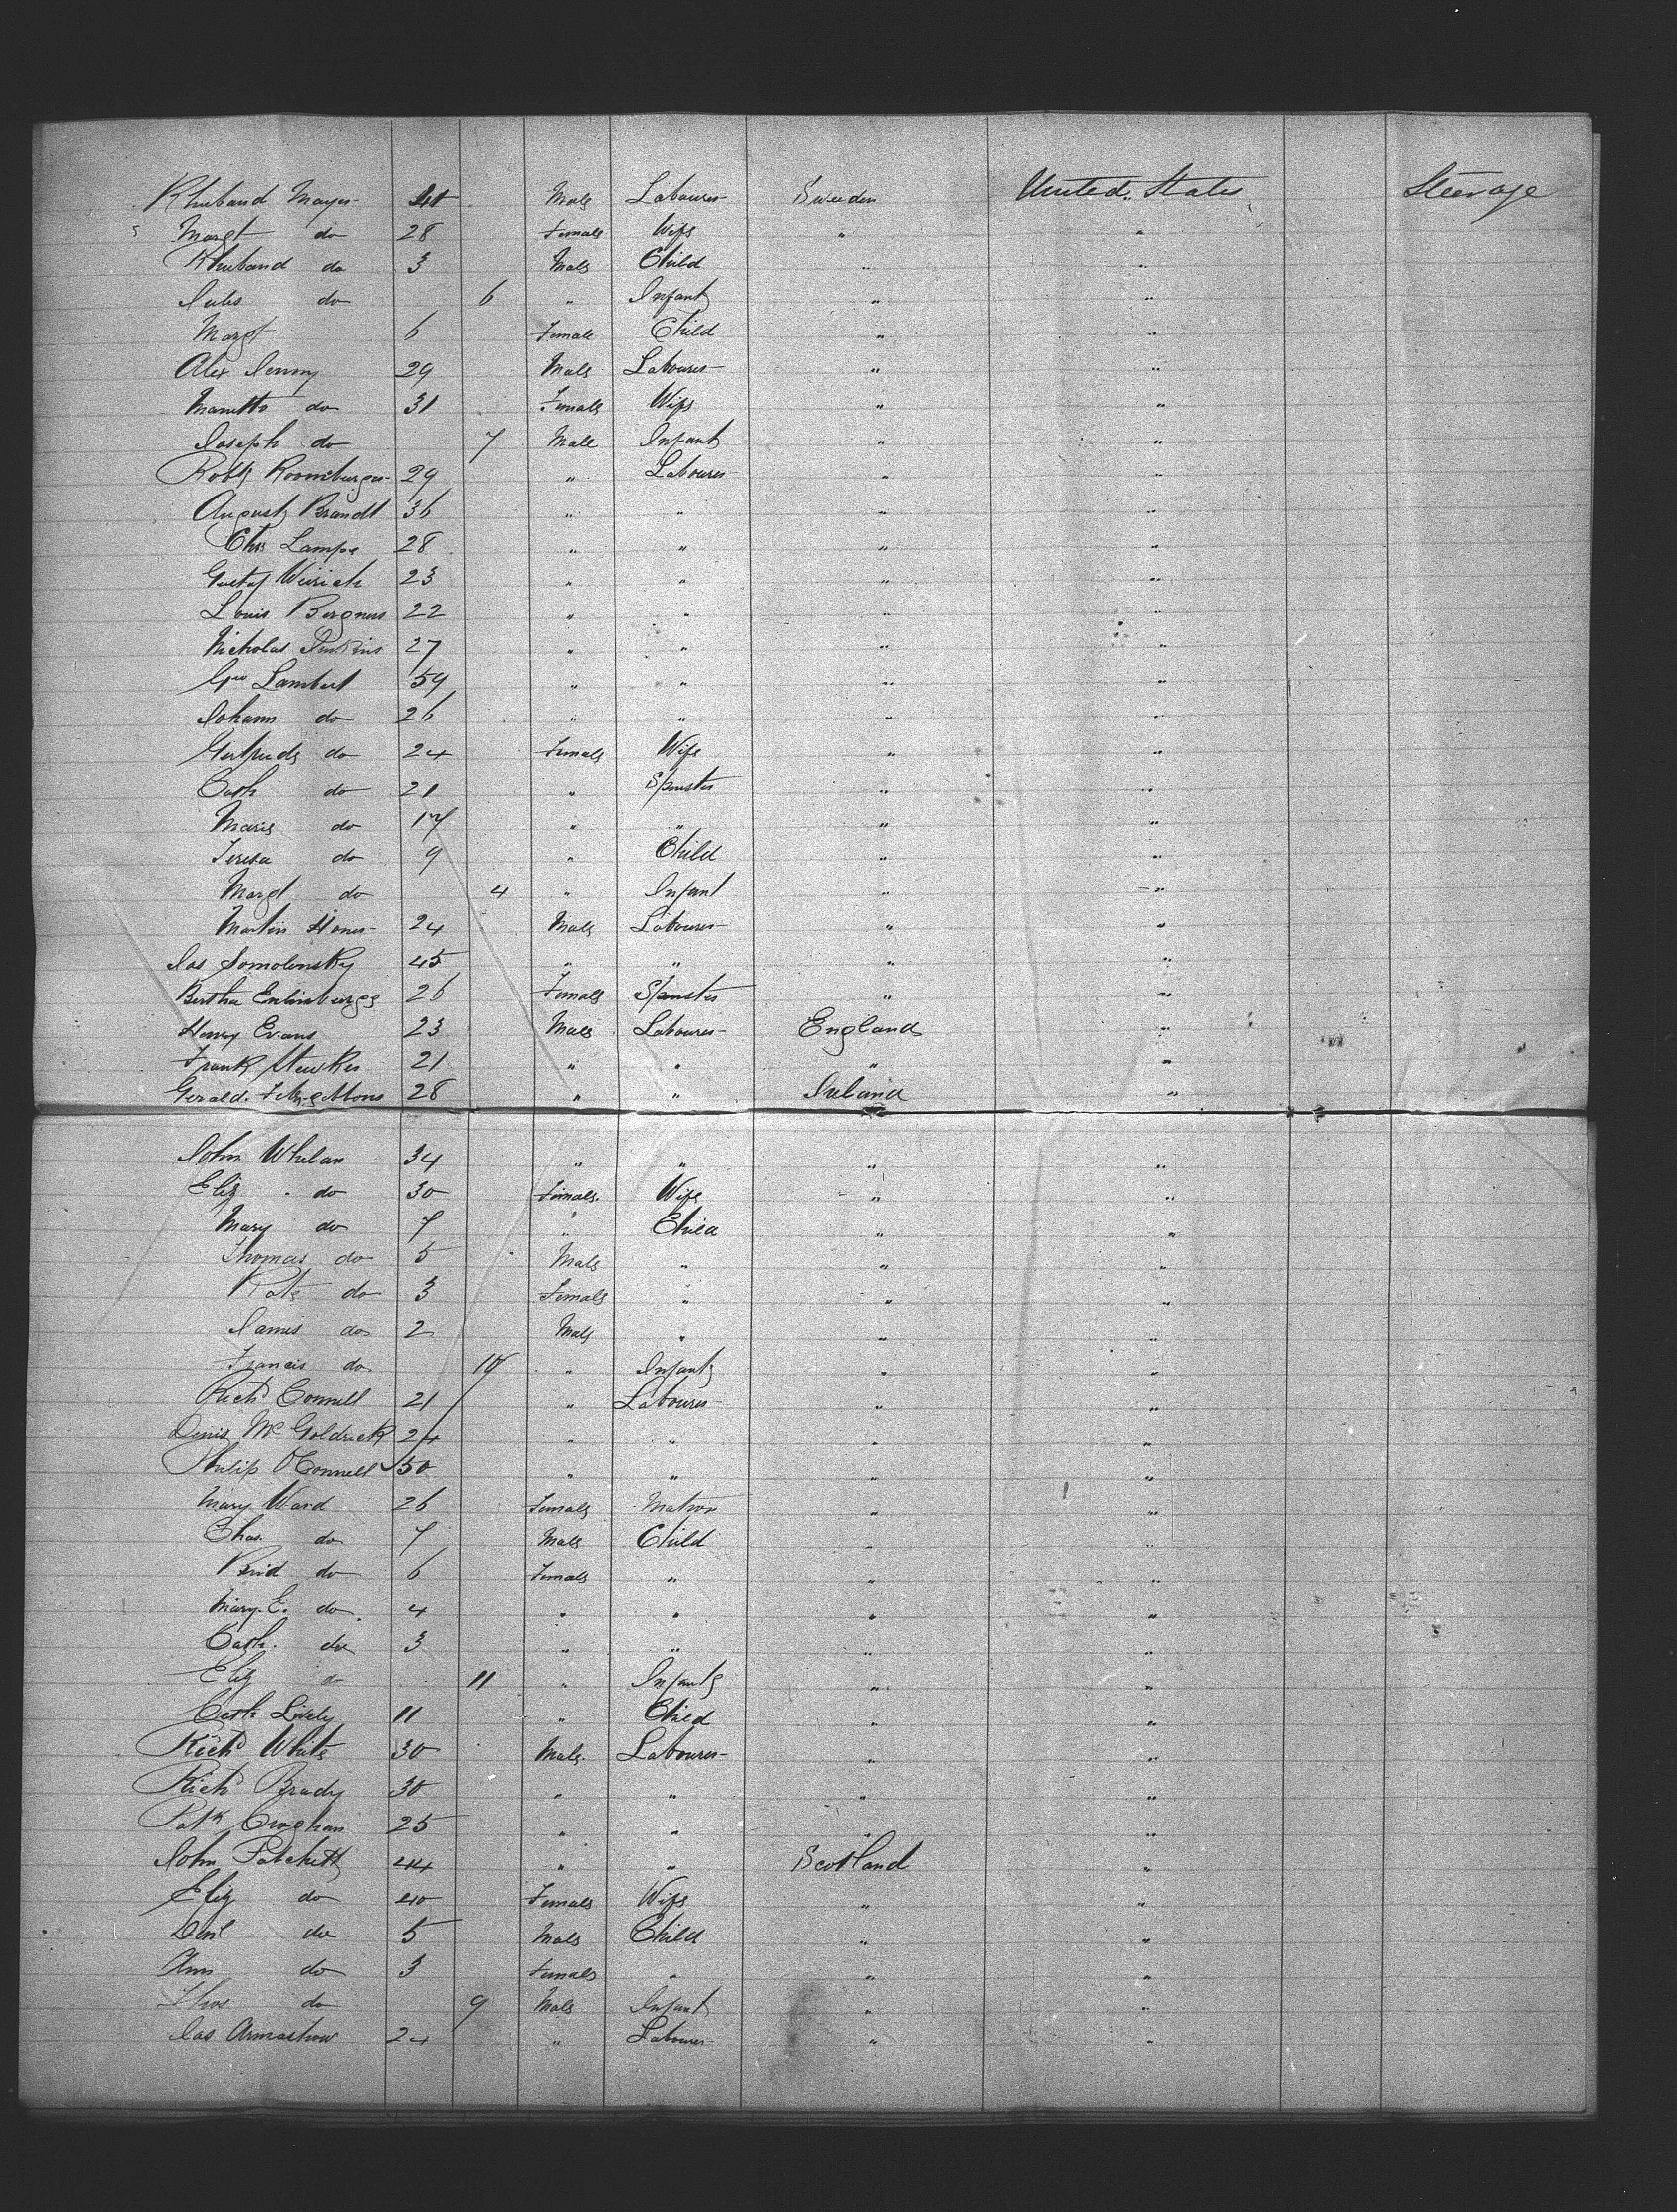 Mayer 40 Male Labourer Sweden United States Steerage
Margt do 28 Female Wife " "
do 3 Male Child " "
Jules do 6 " Infant " "
Margt 6 Female Child " "
Alex Jenny 29 Male Labourer " "
do 31 Female Wife " "
Joseph do 7 Male Infant " "
Robt 29 " Labourer " "
August Brandt 36 " " " "
Chs Lampe 28 " " " "
Gustaf 23 " " " "
Louis 22 " " " "
Nicholas 27 " " " "
Geo Lambert 59 " " " "
Johann do 26 " " " "
Gertrude do 24 Female Wife " "
Cath do 21 " Spinster " "
Marie do 17 " " " "
Teresa do 9 " Child " "
Margt do 4 " Infant " "
Martin 24 Male Labourer " "
Jas Somolensky 45 " " " "
Bertha 26 Female Spinster " "
Henry Evans 23 Male Labourer England "
Frank 21 " " " "
Gerald 28 " " Ireland "
John Whelan 34 " " " "
Eliz do 30 Female Wife " "
Mary do 7 " Child " "
Thomas do 5 Male " " "
Kate do 3 Female " " "
James do 2 Male " " "
Francis do 10 " Infant " "
Richd Connell 21 " Labourer " "
Denis McGoldrick 24 " " " "
Philip O'Connell 50 " " " "
Mary Ward 26 Female Matron " "
Chas. do 7 Male Child " "
Brid do 6 Female " " "
Mary. E. do 4 " " " "
Cath. do 3 " " " "
Eliz do 11 " Infant " "
Cath Lively 11 " Child " "
Richd White 30 Male Labourer " "
Richd Brady 30 " " " "
Patk Croghan 25 " " " "
John Patchett 44 " " Scotland "
Eliz do 40 Female Wife " "
do 5 Male Child " "
Ann do 3 Female " " "
Thos do 9 Male Infant " "
Jas 24 " Labourer " "